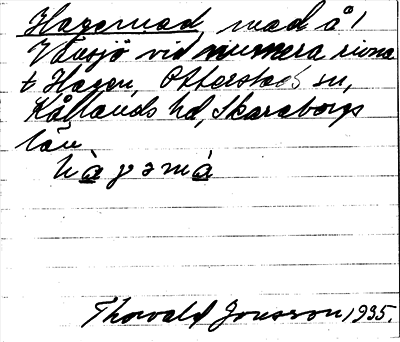 Hagemad, mad å 1
Vänsjö vid numera rivna
t Hagen, Otterstads sn,
Kållands hd, Skaraborgs
län.
hàgəmá
Thorvald Jonsson 1935.